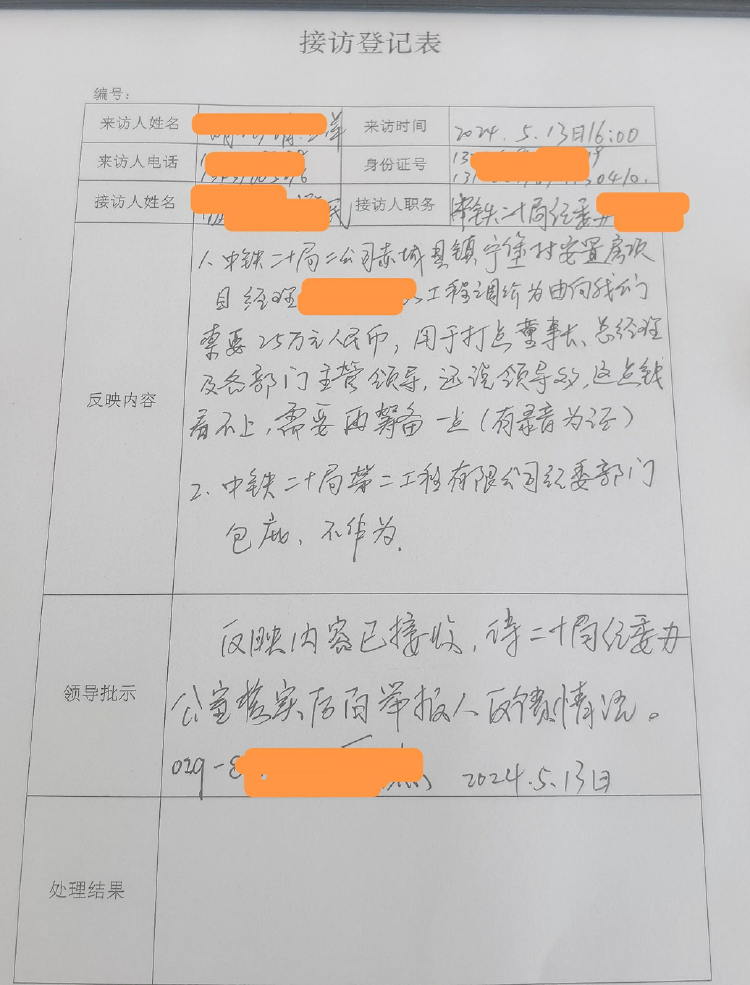 接访登记表
编号:
来访人姓名 来访时间 2024.5.13日16:00
来访人电话 身份证号
接访人姓名 民 接访人职务 中铁二十局纪委办
反映内容
1、中铁二十局二公司赤城县镇宁堡村安置房项
目经理 工程调价为由向我们
索要25万元人民币,用于打点董事长、总经理
及各部门主管领导,还说领导多,这点钱
看不上,需要再筹备一点(有录音为证)
2、中铁二十局第二工程有限公司纪委部门
包庇、不作为.
领导批示
反映内容已接收,待二十局纪委办
公室核实后向举报人反馈情况。
029- 2024.5.13日
处理结果